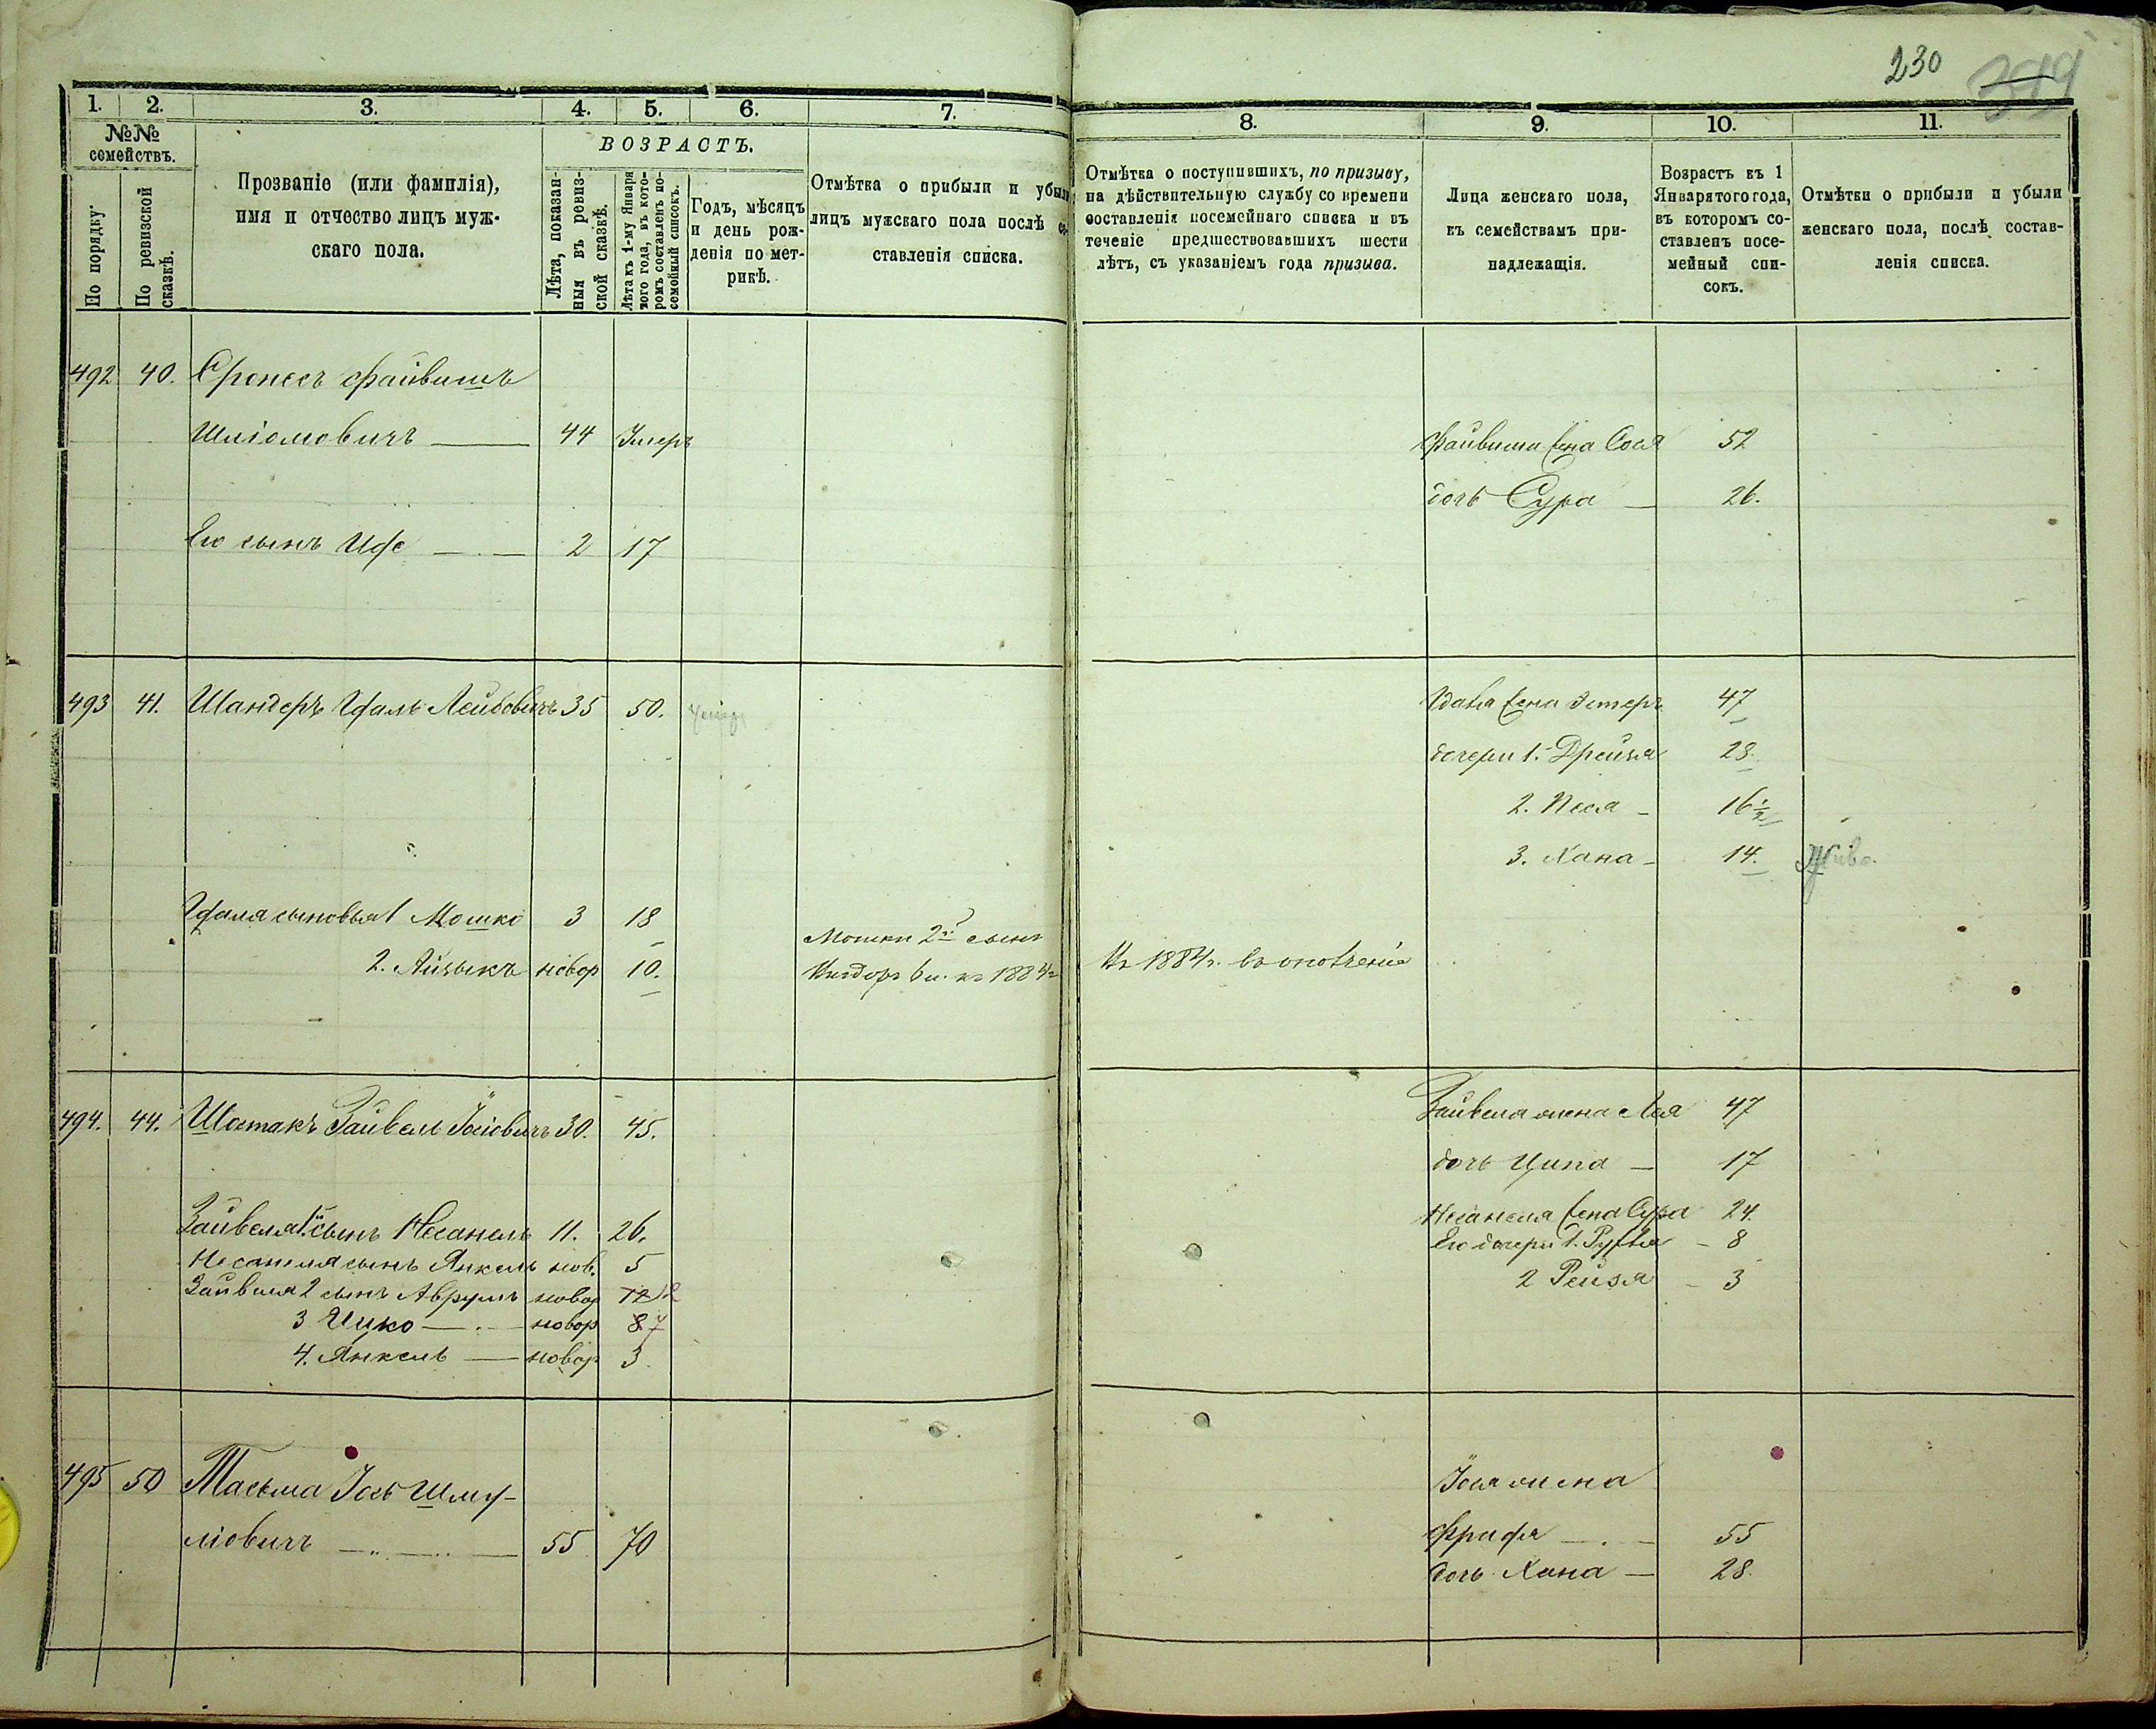 230
399
1. 2. 3. 4. 5. 6. 7.
№№ семействъ.
По порядку.
По ревизской сказкѣ.
Прозваніе (или фамилія), имя и отчество лицъ мужскаго пола.
ВОЗРАСТЪ.
Лѣта, показанныя въ ревизской сказкѣ.
Лѣта къ 1-му Января того года, въ которомъ составленъ посемейный списокъ.
Годъ, мѣсяцъ и день рожденія по метрикѣ.
Отмѣтка о прибыли и убыли
лицъ мужскаго пола послѣ со-
ставленія списка.
8. 9. 10. 11.
Отмѣтка о поступившихъ, по призыву,
на дѣйствительную службу со времени
составленія посемейнаго списка и въ
теченіе предшествовавшихъ шести
лѣтъ, съ указаніемъ года призыва.
Лица женскаго пола,
къ семействамъ при-
надлежащія.
Возрастъ къ 1
Января того года,
въ которомъ со-
ставленъ посе-
мейный спи-
сокъ.
Отмѣтки о прибыли и убыли
женскаго пола, послѣ состав-
ленія списка.
492 40. Файвишъ
Шліомовичъ 44 Умеръ
Файвиша жена Сося 52
дочь Сура 26.
Его сынъ 2 17
493 41. Шандеръ Лейбовичъ 35 50.
жена Эстеръ 47
дочери 1. Дрейзя 28.
2. Песя 16½
3. Хана 14.
сыновья 1 Мошко 3 18
2. Айзыкъ новор 10.
Мошки 2й сынъ
къ 1884г
Въ 1884г. въ ополченіе
494. 44. Шостакъ Зайвель Іосіовичъ 30. 45.
Зайвеля жена Лея 47
дочь Ципа 17
Зайвеля 1й сынъ Несанель 11. 26.
Несанеля жена Сура 24.
Несанеля сынъ Янкель нов. 5
Его дочери 1. 8
Зайвеля 2 сынъ Аврумъ новор 12 12
2 Рейзя 3
3 Ицко новор 8 7
4. Янкель новор 3.
495 50 Тасьма Іось Шму-
ліовичъ 55 70
Іося жена
55
дочь Хана 28.